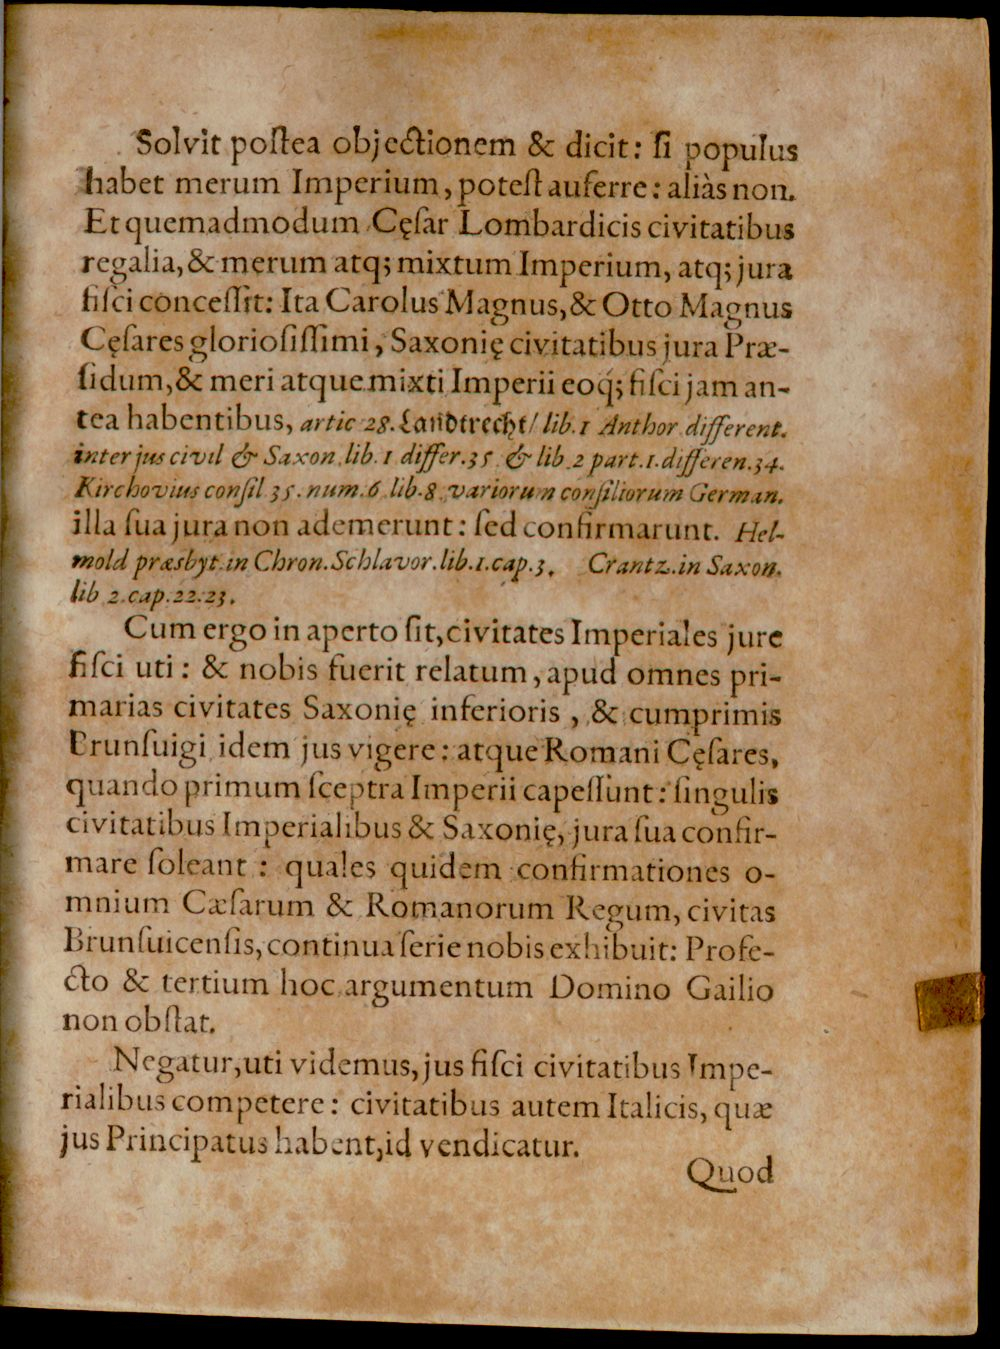 Solvit poſtea objectionem & dicit: ſi populus
habet merum Imperium, poteſt auferre: aliàs non.
Et quemadmodum Cęſar Lombardicis civitatibus
regalia, & merum atq; mixtum Imperium, atq; jura
fiſci conceſſit: Ita Carolus Magnus, & Otto Magnus
Cęſares glorioſiſſimi, Saxonię civitatibus jura Præ-
ſidum, & meri atque mixti Imperii eoq́; fiſci jam an-
tea habentibus, artic 28. Landtrecht/ lib. 1 Anthor different.
inter jus civil & Saxon. lib. 1 differ. 35 & lib 2 part. 1. differen. 34.
Kirchovius conſil 35. num. 6 lib. 8. variorum conſiliorum German.
illa ſua jura non ademerunt: ſed confirmarunt. Hel-
mold præsbyt. in Chron. Schlavor. lib. 1. cap. 3. Crantz. in Saxon.
lib 2. cap. 22. 23.
Cum ergo in aperto ſit, civitates Imperiales jure
fiſci uti: & nobis fuerit relatum, apud omnes pri-
marias civitates Saxonię inferioris, & cumprimis
Brunſuigi idem jus vigere: atque Romani Cęſares,
quando primum ſceptra Imperii capeſſunt: ſingulis
civitatibus Imperialibus & Saxonię, jura ſua confir-
mare ſoleant: quales quidem confirmationes o-
mnium Cæſarum & Romanorum Regum, civitas
Brunſuicenſis, continua ſerie nobis exhibuit: Profe-
cto & tertium hoc argumentum Domino Gailio
non obſtat.
Negatur, uti videmus, jus fiſci civitatibus Impe-
rialibus competere: civitatibus autem Italicis, quæ
jus Principatus habent, id vendicatur.
Quod